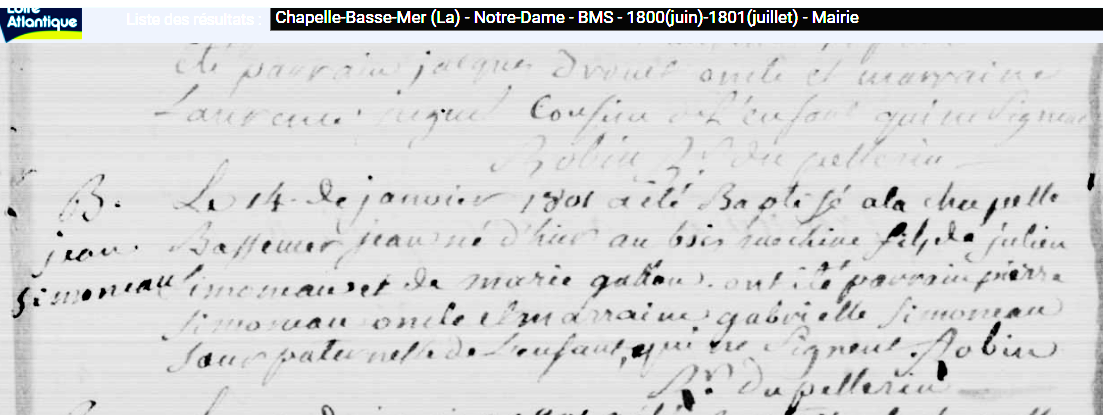 Loire
Atlantique
Liste des résultats :
Chapelle-Basse-Mer (La) - Notre-Dame - BMS - 1800(juin)-1801(juillet) - Mairie
été parrain jacques Drouet oncle et marraine
Laurence Cousine de L'enfant qui ne Signent
Robin Pr. du pellerin
B.
jean
Simoneau
Le 14 de janvier 1801 a été Baptisé a la chapelle
Bassemer jean né d'hier au bois fils de julien
Simoneau et de marie ont été parrain pierre
Simoneau oncle et marraine gabrielle Simoneau
Sœur paternelle de L'enfant, qui ne Signent. Robin
Pr. du pellerin